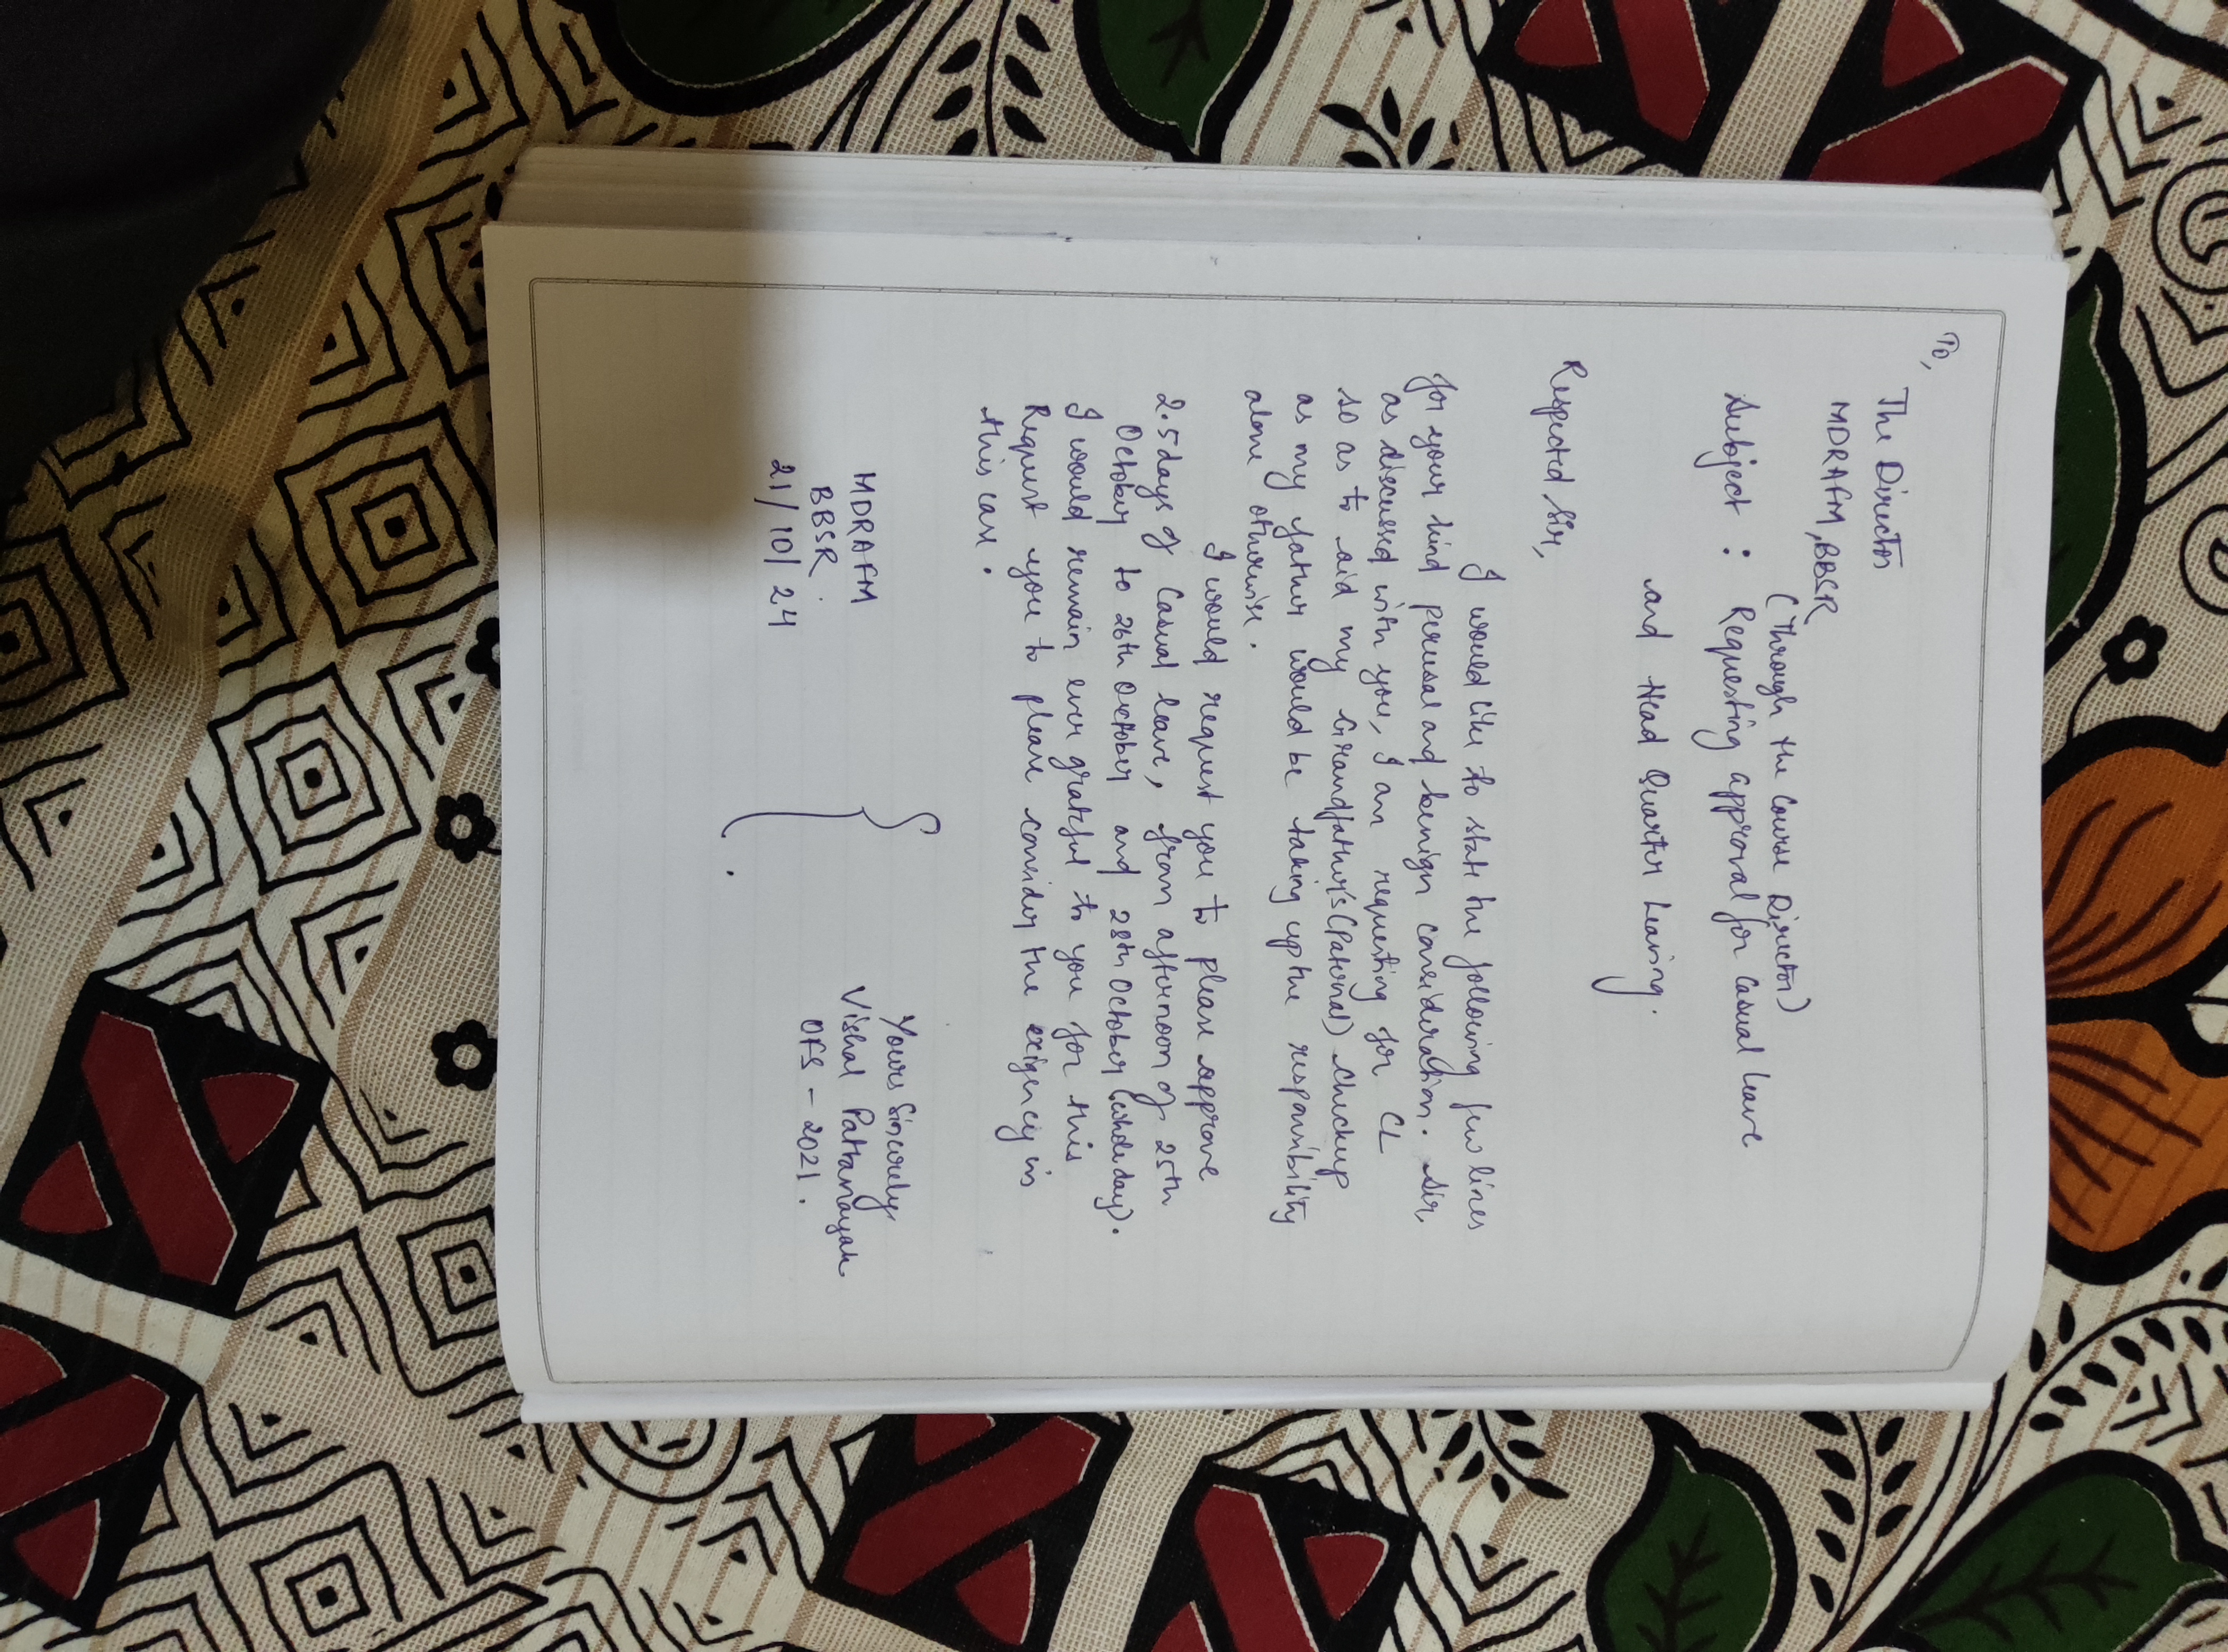 To,
The Director
MDRAFM, BBSR
(Through the Course Director)
Subject : Requesting approval for Casual Leave
and Head Quarter Leaving.
Respected Sir,
I would like to state the following few lines
for your kind perusal and benign consideration. Sir,
as discussed with you, I am requesting for CL
so as to aid my Grandfather's (Paternal) checkup
as my father would be taking up the responsibility
alone otherwise.
I would request you to please approve
2.5 days of Casual leave, from afternoon of 25th
October to 26th October and 28th October (whole day).
I would remain ever grateful to you for this
Request you to please consider the exigency in
this case.
Yours Sincerely,
MDRAFM
Vishal Pattanayak
BBSR.
OFS - 2021.
21/10/24